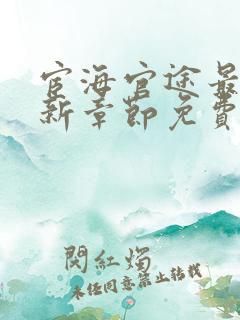 宦海官途最
新章節免費
閔紅燭
未經同意禁止轉載